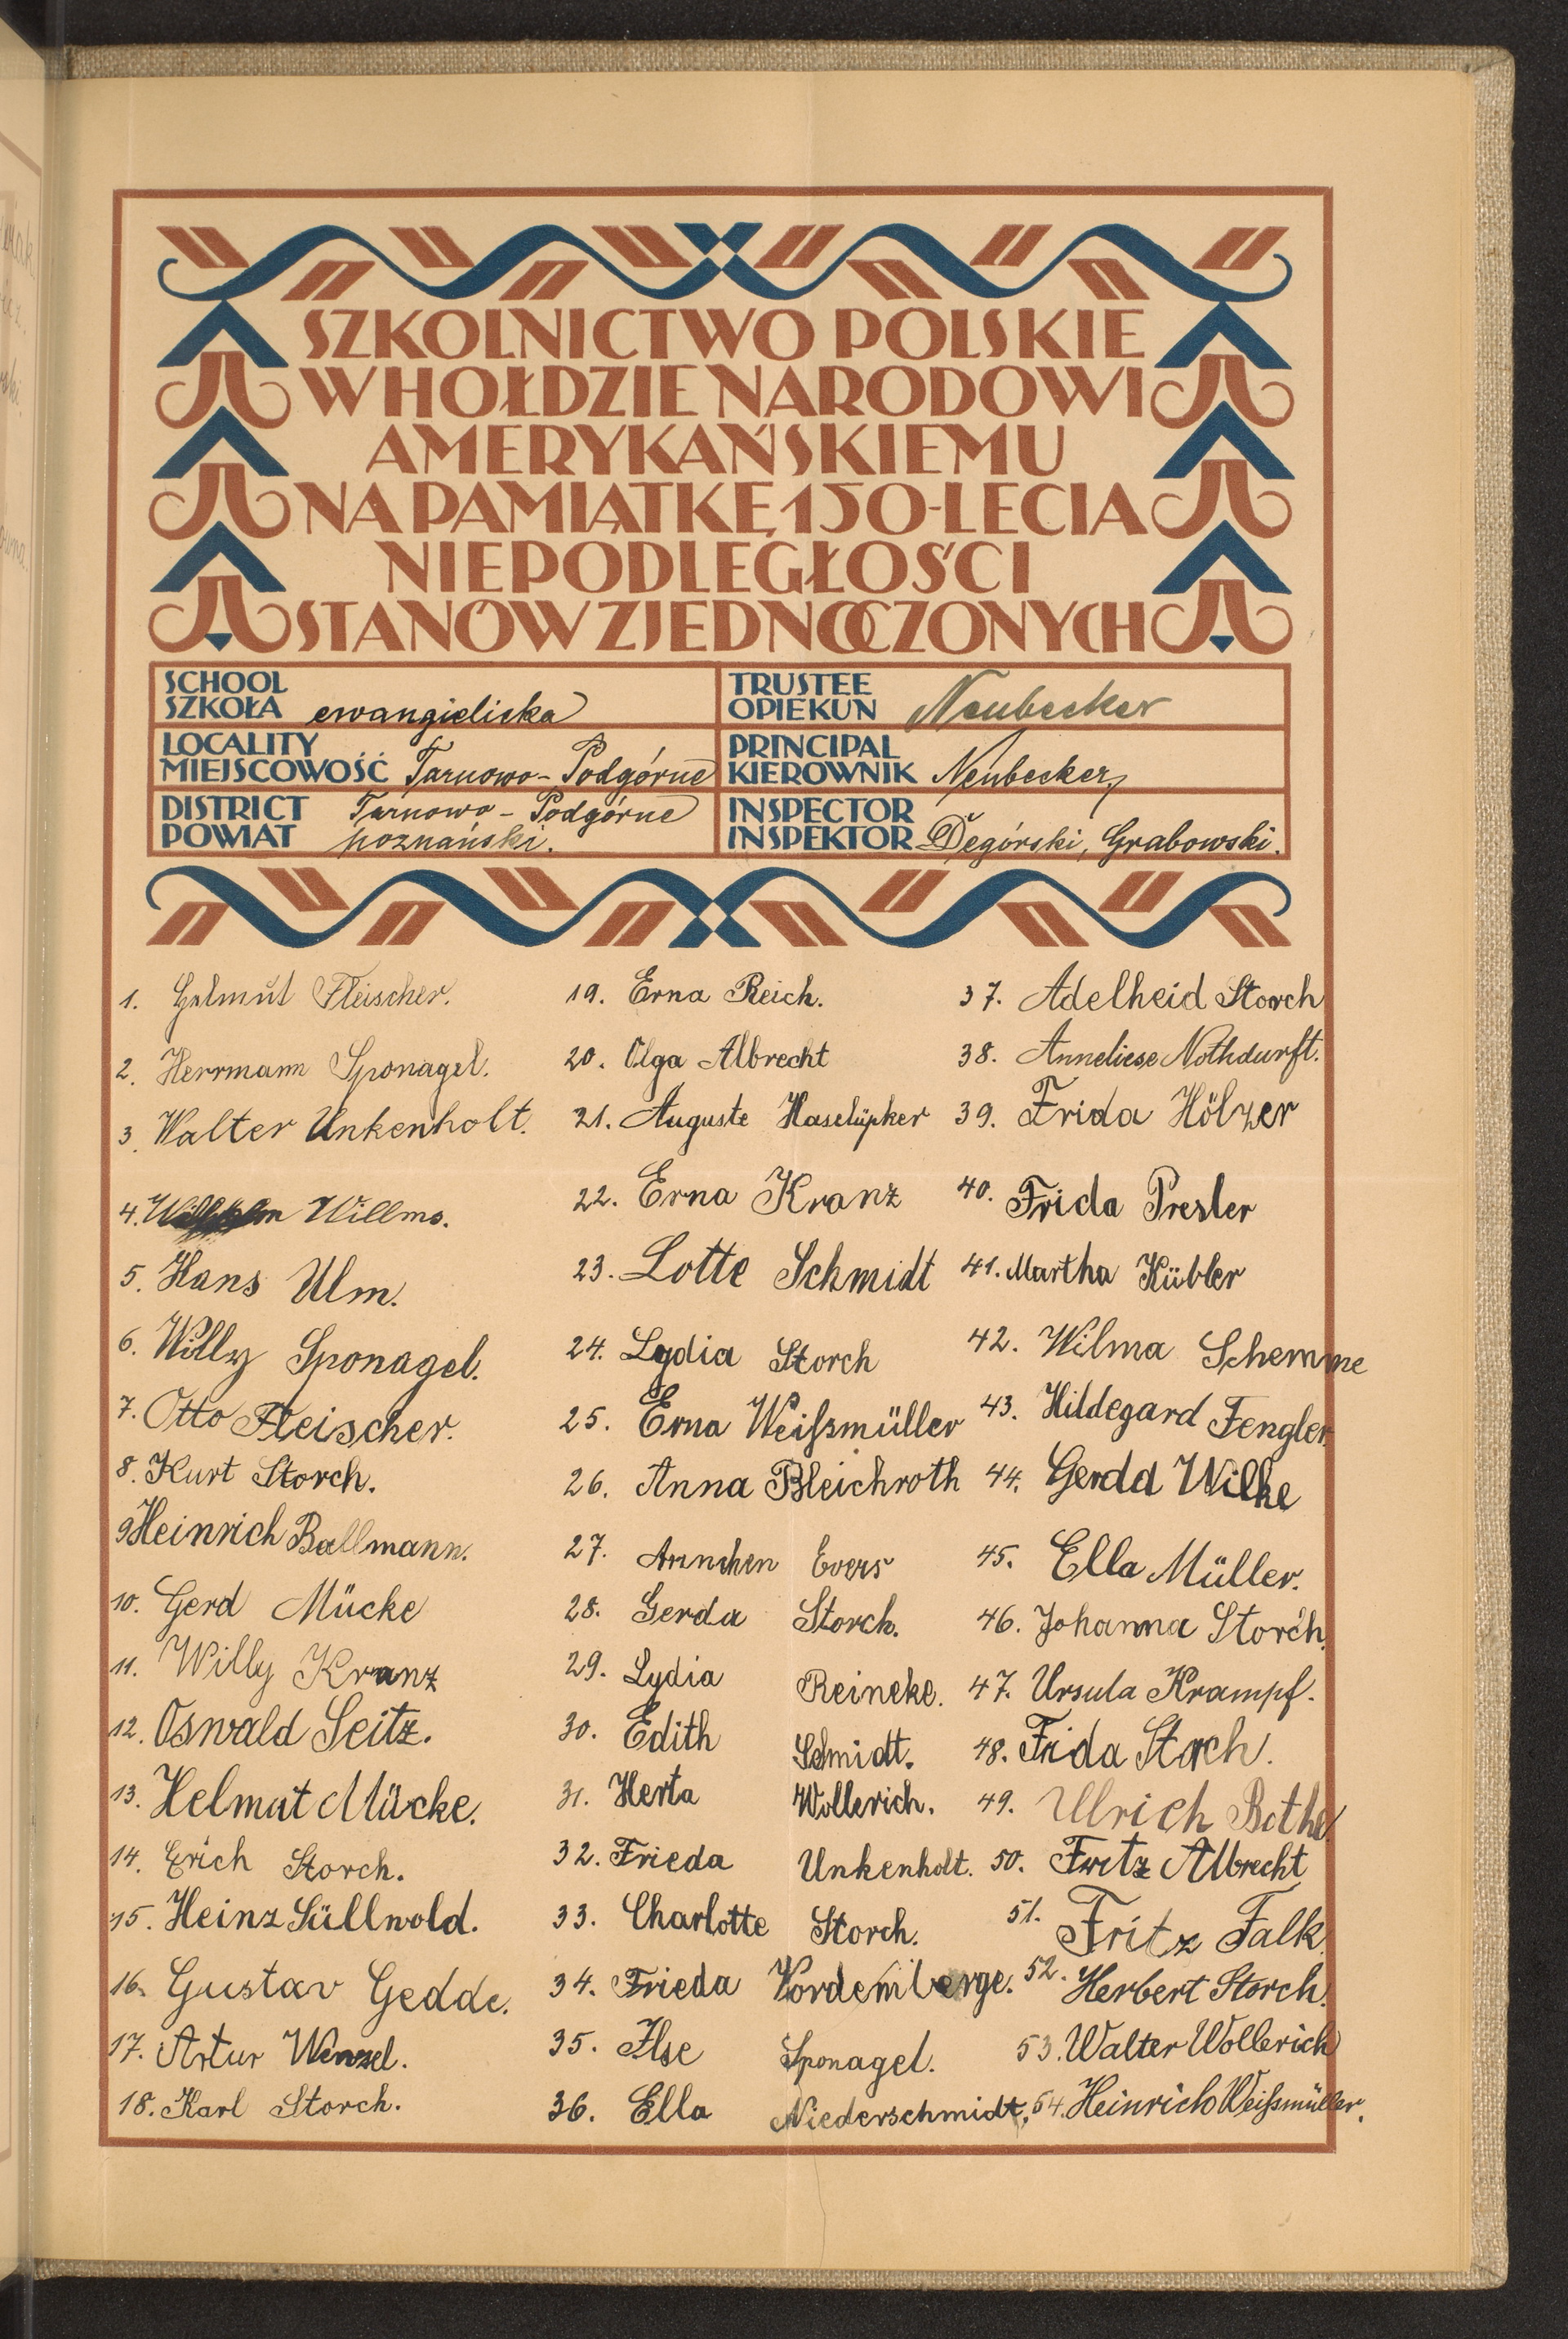 SZKOLNICTWO POLSKIE
W HOŁDZIE NARODOWI
AMERYKAŃSKIEMU
NA PAMIĄTKĘ 150-LECIA
NIEPODLEGŁOŚCI
STANÓW ZJEDNOCZONYCH
SCHOOL
SZKOŁA ewangielicka
TRUSTEE
OPIEKUN Neubecker
LOCALITY
MIEJSCOWOŚĆ Tarnowo-Podgórne
PRINCIPAL
KIEROWNIK Neubecker
DISTRICT Tarnowo-Podgórne
POWIAT poznański.
INSPECTOR
INSPEKTOR Degórski, Grabowski.
1. Helmut Fleischer.
2. Herrmann Sponagel.
3. Walter Unkenholt.
4. Willms.
5. Hans Ulm.
6. Willy Sponagel.
7. Otto Fleischer.
8. Kurt Storch.
9 Heinrich Ballmann.
10. Gerd Mücke
11. Willy Kranz
12. Oswald Seitz.
13. Helmut Mücke.
14. Erich Storch.
15. Heinz Süllwold.
16. Gustav Gedde.
17. Artur Wenzel.
18. Karl Storch.
19. Erna Reich.
20. Olga Albrecht
21. Auguste Haselüpker
22. Erna Kranz
23. Lotte Schmidt
24. Lydia Storch
25. Erna Weißmüller
26. Anna Bleichroth
27. Annchen Evers
28. Gerda Storch.
29. Lydia Reineke.
30. Edith Schmidt.
31. Herta Wollerich.
32. Frieda Unkenholt.
33. Charlotte Storch.
34. Frieda Vordemberge.
35. Ilse Sponagel.
36. Ella Niederschmidt.
37. Adelheid Storch
38. Anneliese Nothdurft.
39. Frida Hölzer
40. Frida Presler
41. Martha Kübler
42. Wilma Schemme
43. Hildegard Fengler
44. Gerda Wilke
45. Ella Müller.
46. Johanna Storch.
47. Ursula Krampf.
48. Frida Storch.
49. Ulrich Bothe
50. Fritz Albrecht
51. Fritz Falk
52. Herbert Storch.
53. Walter Wollerich
54. Heinrich Weißmüller.